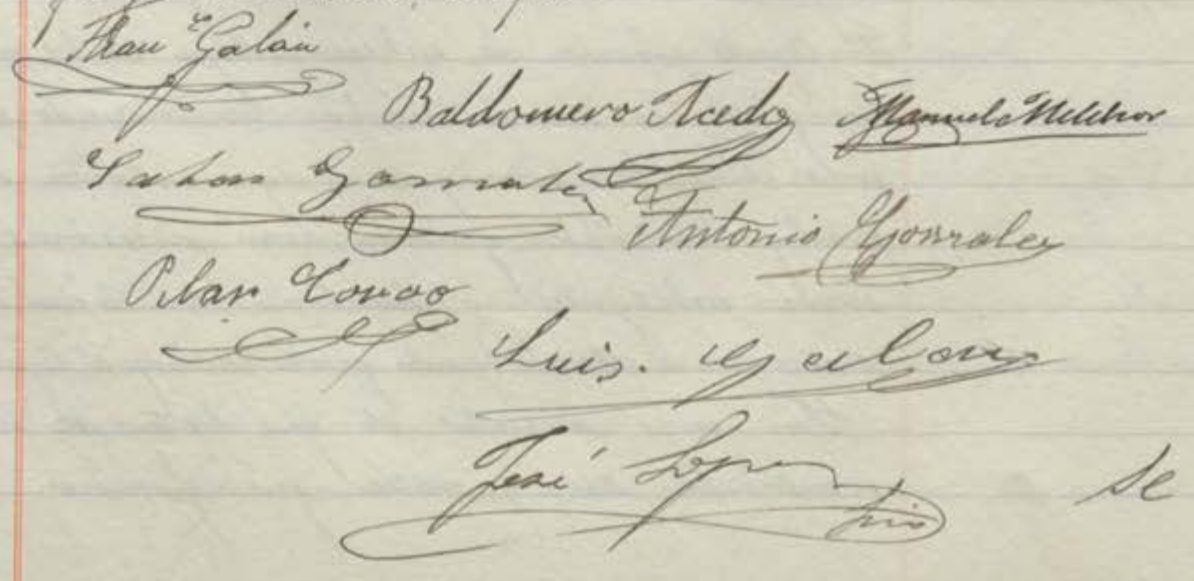 Galán
Baldomero Acedo Manuel Melchor
Gonzalez
Antonio Gonzalez
Pilar
Luis. Galan
José Lopez
Se